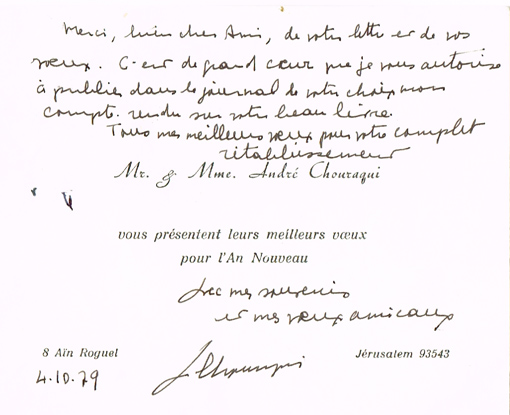 Merci, bien cher Ami, de votre lettre et de vos
vœux. C'est de grand cœur que je vous autorise
à publier dans le journal de votre choix mon
compte-rendu sur votre beau livre.
Tous mes meilleurs vœux pour votre complet
rétablissement
Mr. & Mme. André Chouraqui
vous présentent leurs meilleurs vœux
pour l'An Nouveau
Avec mes souvenirs
et mes vœux amicaux
8 Aïn Roguel
Jérusalem 93543
4.10.79
AChouraqui